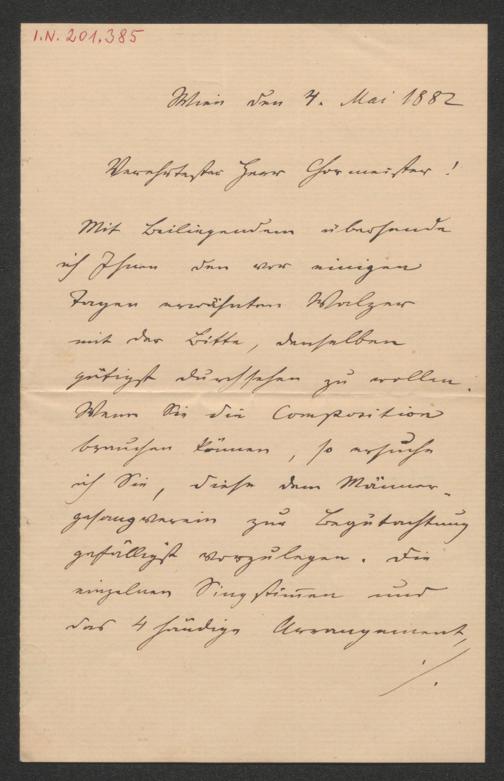 I.N. 201.385
Wien den 4. Mai 1882
Verehrtester Herr Chormeister!
Mit Beiliegendem übersende
ich Ihnen den vor einigen
Tagen erwähnten Walzer
mit der Bitte, denselben
gütigst durchsehen zu wollen.
Wenn Sie die Composition
brauchen können, so ersuche
ich Sie, diese dem Männer-
gesangverein zur Begutachtung
gefälligst vorzulegen. Die
einzelnen Singstim̅en und
das 4 händige Arrangement,
./.